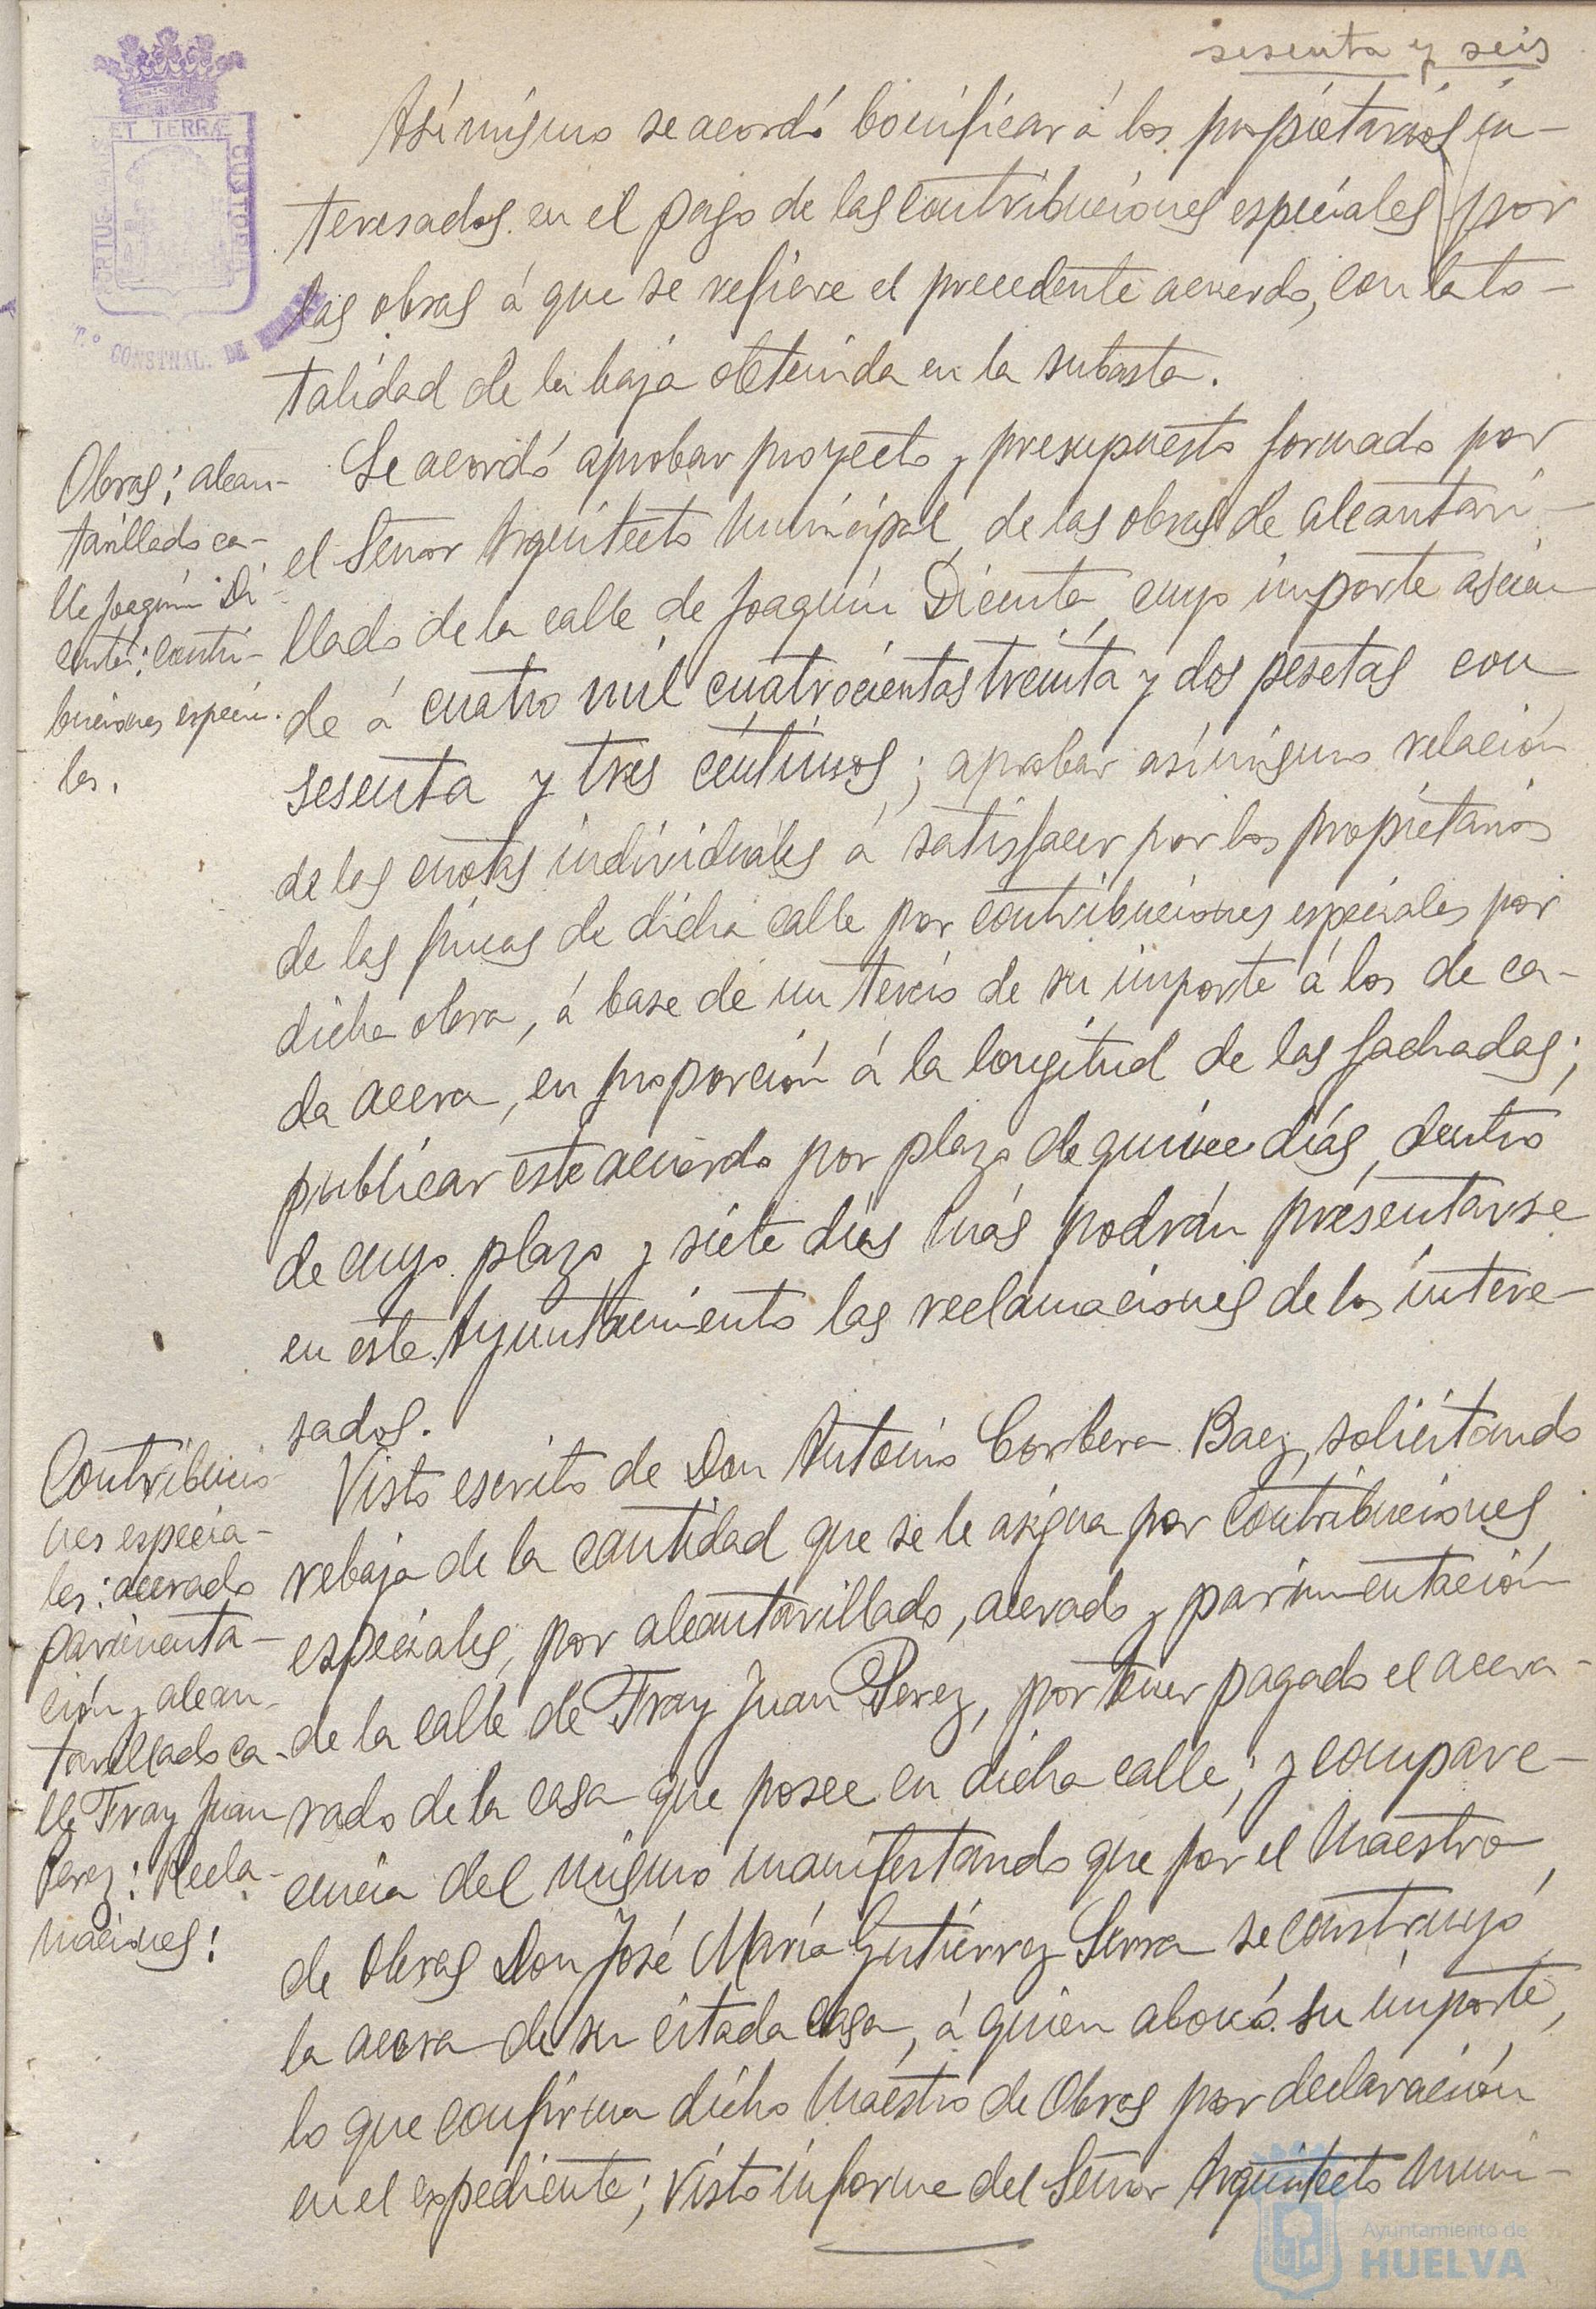 sesenta y seis
Asímismo se acordó bonificar á los propietarios in-
teresados en el pago de las contribuciones especiales por
las obras á que se refiere el precedente acuerdo, con la to-
talidad de la baja obtenida en la subasta.
Obras; alcan-
tarillado ca-
lle Joaquín Di-
centa; contri-
buciones especia-
les.
Se acordó aprobar proyecto y presupuesto formado por
el Señor Arquitecto Municipal, de las obras de alcantari-
llado de la calle de Joaquín Dicenta, cuyo importe ascien
de á cuatro mil cuatrocientas treinta y dos pesetas con
sesenta y tres céntimos; aprobar asímismo relación
de las cuotas individuales á satisfacer por los propietarios
de las fincas de dicha calle por contribuciones especiales por
dicha obra, á base de un tercio de su importe á los de ca-
da acera, en proporción á la longitud de las fachadas;
publicar este acuerdo por plazo de quince días, dentro
de cuyo plazo y siete días más podrán presentarse
en este Ayuntamiento las reclamaciones de los intere-
sados.
Contribucio
nes especia-
les: acerado
pavimenta-
ción y alcan-
tarillado ca-
lle Fray Juan
Perez: Recla-
maciones:
Visto escrito de Don Antonio Corbera Baez, solicitando
rebaja de la cantidad que se le asigna por contribuciones
especiales, por alcantarillado, acerado y pavimentación
de la calle de Fray Juan Perez, por tener pagado el acera-
rado de la casa que posee en dicha calle; y compare-
cencia del mismo manifestando que por el Maestro
de Obras Don José María Gutiérrez Serra se construyó
la acera de su citada casa, á quien abonó su importe,
lo que confirma dicho Maestro de Obras por declaración
en el expediente; visto informe del Señor Arquitecto Muni-
ET TERRÆ
CUSTODIA
CONSTNAL. DE
Ayuntamiento de
HUELVA